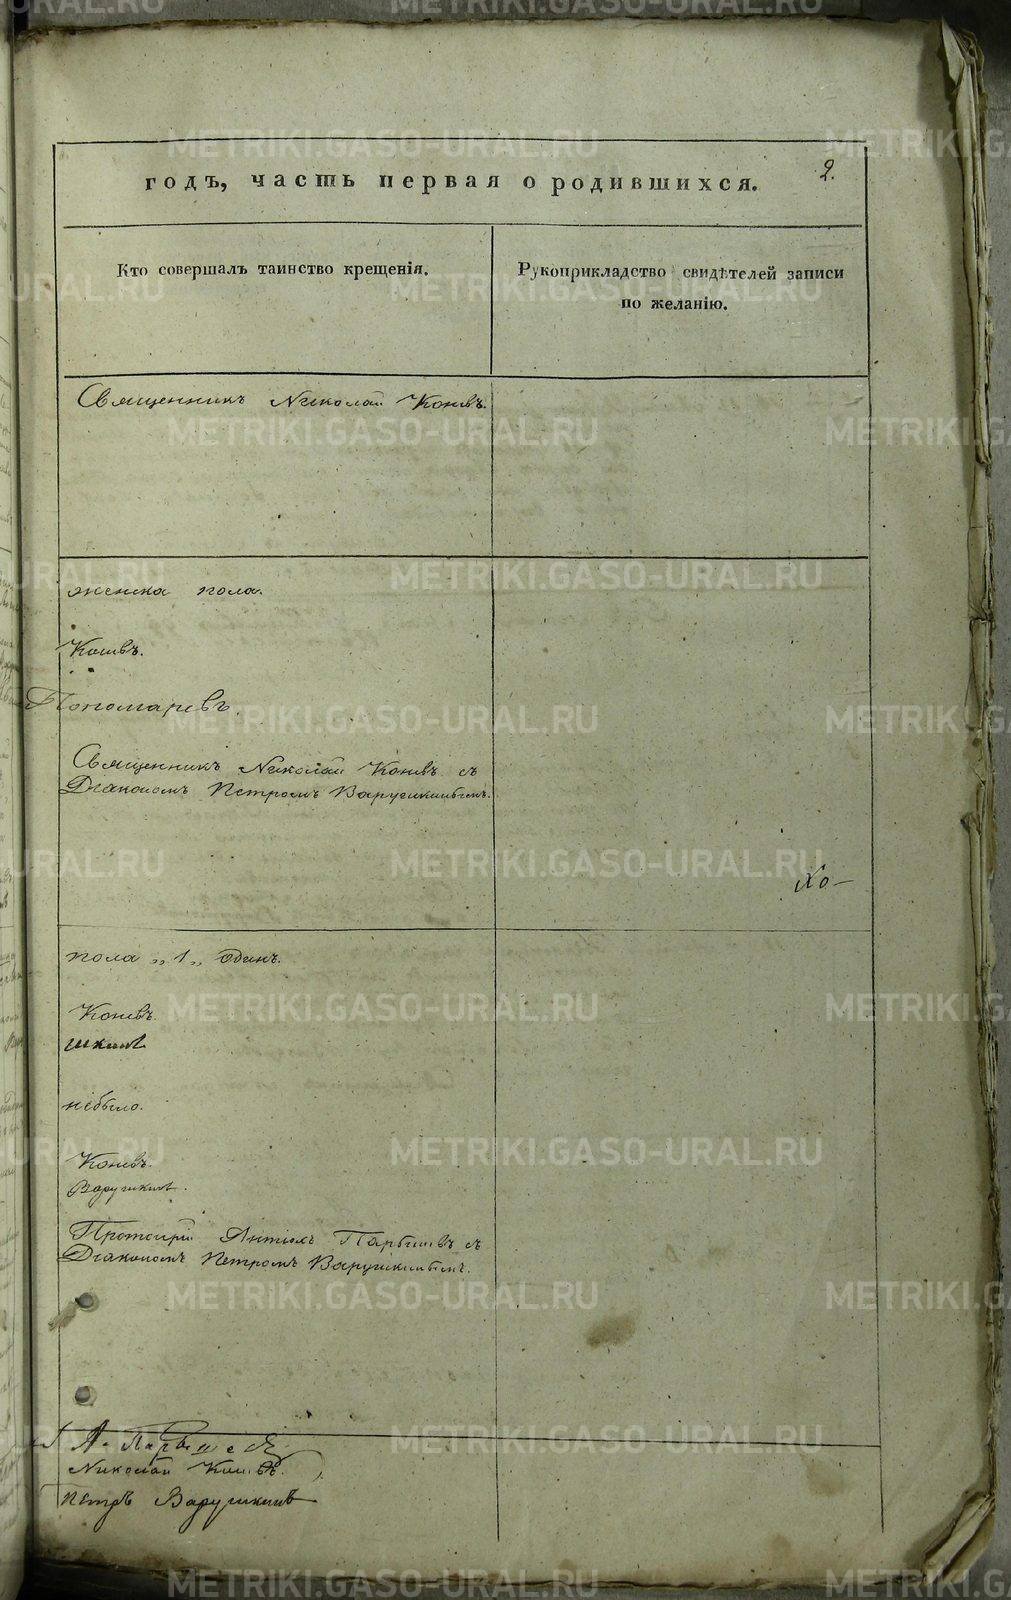 годъ, часть первая о родившихся.
2.
Кто совершалъ таинство крещенія.
Рукоприкладство свидѣтелей записи
по желанію.
Священникъ Николай Коневъ.
женска пола.
Коневъ.
Пономаревъ.
Священникъ Николай Коневъ съ
Діакономъ Петромъ Варушкинымъ.
Хо-
пола „1„ одинъ.
Коневъ.
шкинъ
небыло.
Коневъ.
Варушкинъ.
Протоіерей Парышевъ съ
Діакономъ Петромъ Варушкинымъ.
А. Парышевъ
Николай Коневъ.
Петръ Варушкинъ
METRIKI.GASO-URAL.RU